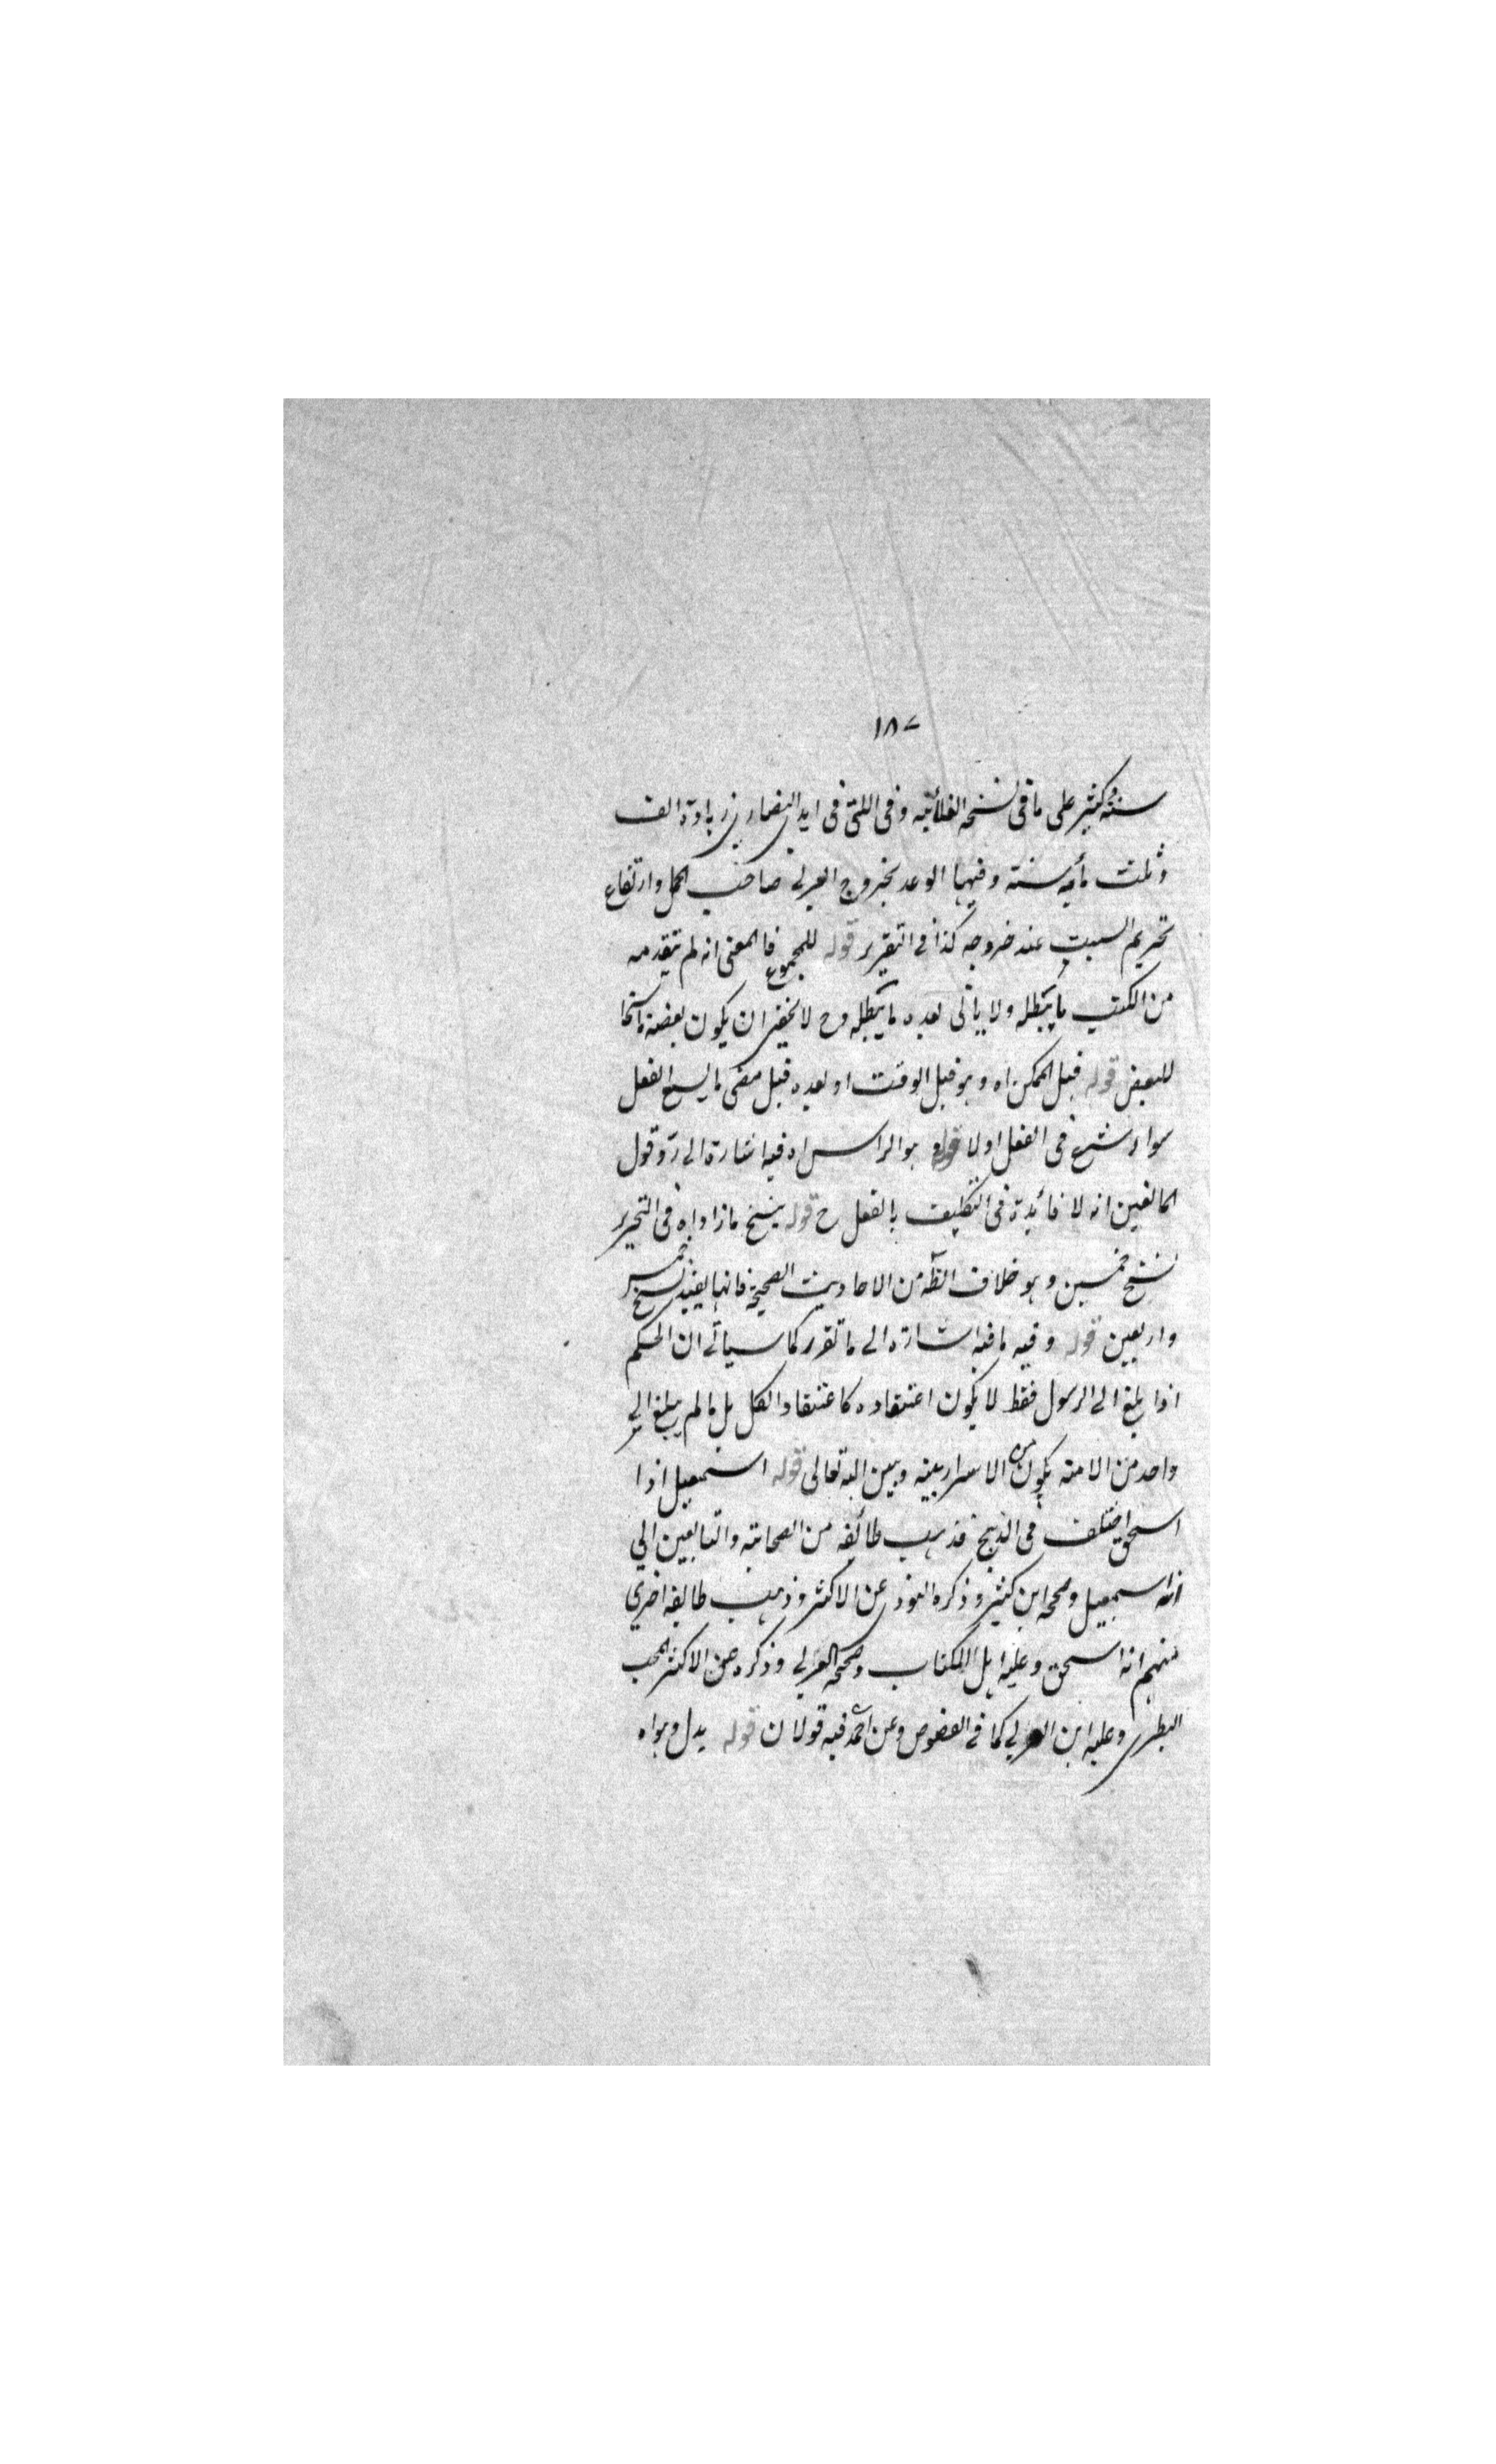 ١٨٧
سنة وكثير على ما فى نسخه الفلانيه وفى اللتى فى ايدى النصارى زيادة الف
وثلث مأيه سنة وفيها الوعد بخروج العربى صاحب الجمل وارتفاع
تحريم السبت عند خروجه كذا فى التقرير قوله للمجموع فالمعنى انه لم يتقدمه
من الكتب ما يبطله ولا يأتى بعده ما يبطله وح لا يخفى ان يكون بعضه ناسخا
للبعض قوله قبل التمكن اه وهو قبل الوقت او بعده قبل مضى ما يسع الفعل
سواء شرع فى الفعل اولا قوله هو الراس اه فيه اشارة الى رد قول
المانعين انه لا فائدة فى التكليف بالفعل ح قوله ينسخ ما زاد اه فى التحرير
نسخ خمسين وهو خلاف الظه من الاحاديث الصحيحة فانها يفيد نسخ خمس
واربعين قوله وفيه ما فيه اشارة الى ما تقرر كما سيأتى ان الحكم
اذا بلغ الى الرسول فقط لا يكون اعتقاده كاعتقاد الكل بل ما لم يبلغ الى
واحد من الامته يكون من الاسرار بينه وبين الله تعالى قوله اسمعيل اذا
اسحق اختلف فى الذبيح فذهب طائفه من الصحابته والتابعين الى
انه اسمعيل وصححه ابن كثير وذكره النووى عن الاكثر وذهب طايفه اخرى
منهم انه اسحق وعليه اهل الكتاب وصححه العربى وذكره عن الاكثر المحب
الطبرى وعليه ابن العربى كما فى الفصوص وعن احمد فيه قولان قوله بدل وهو اه